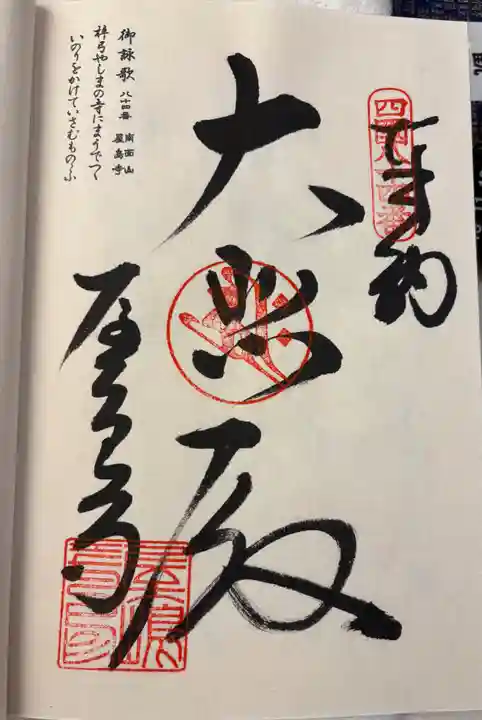 奉納
大悲殿
屋島寺
御詠歌 八十四番 南面山 屋島寺
梓弓やしまの寺にまうでつゝ
いのりをかけていさむものゝふ